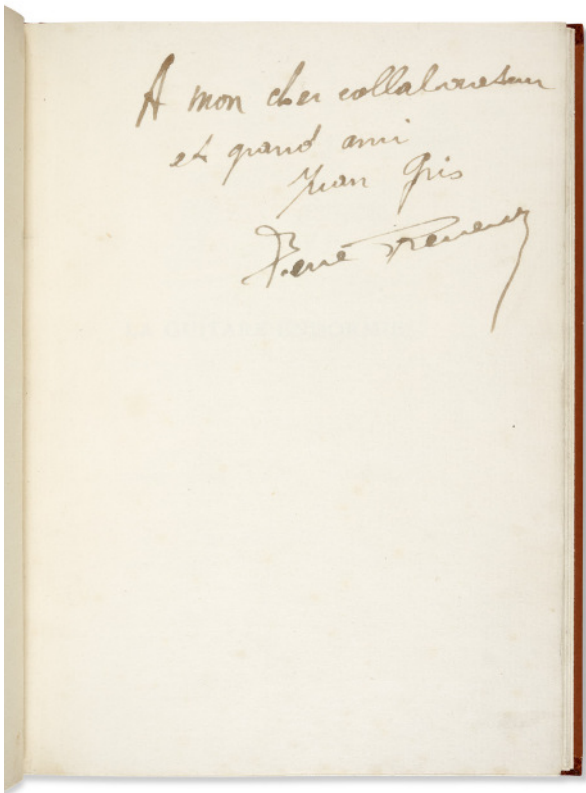 A mon cher collaborateur
et grand ami
Juan Gris
Pierre Reverdy